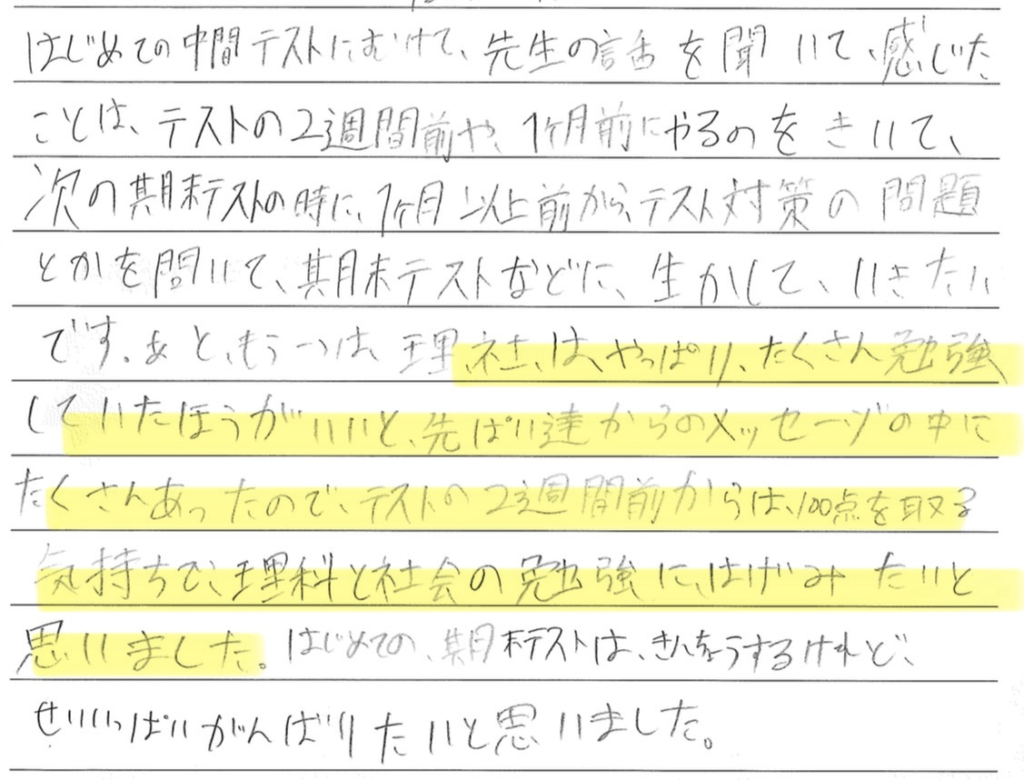 はじめての中間テストにむけて、先生の話を聞いて、感じた
ことは、テストの2週間前や、1ヶ月前にやるのをきいて、
次の期末テストの時に、1ヶ月以上前から、テスト対策の問題
とかを聞いて、期末テストなどに、生かして、いきたい
です。あと、もう一つは、理、社、は、やっぱり、たくさん勉強
していたほうがいいと、先ぱい達からのメッセージの中に
たくさんあったので、テストの2週間前からは、100点を取る
気持ちで、理科と社会の勉強に、はげみたいと
思いました。はじめての、期末テストは、きんちょうするけれど、
せいいっぱいがんばりたいと思いました。